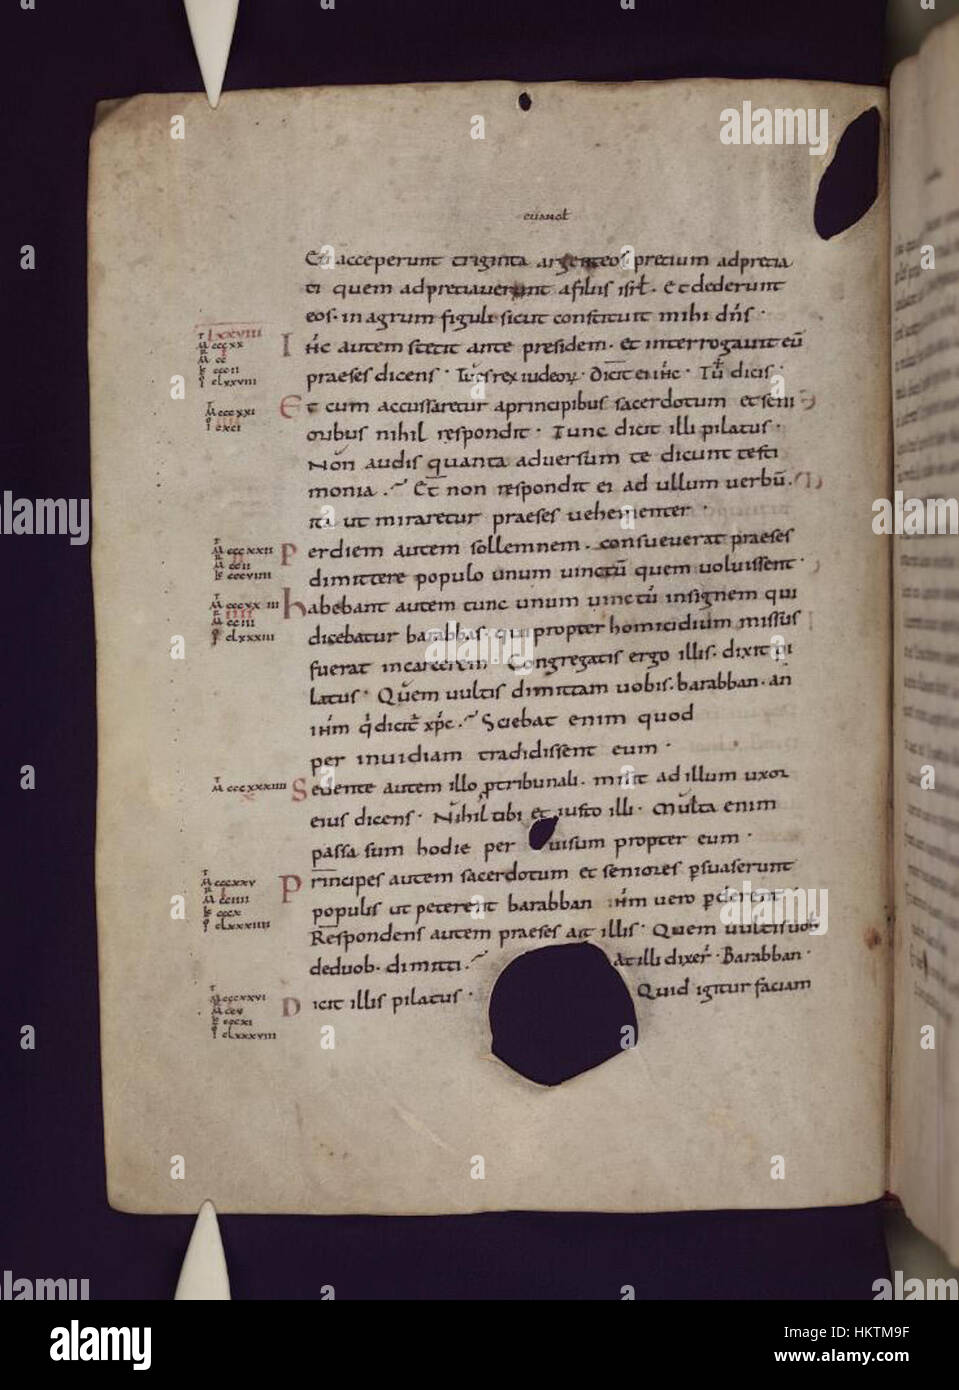 euangl
Et acceperunt triginta argenteos precium adprecia
ti quem adpreciaverunt afiliis isrl. Et dederunt
eos. in agrum figuli sicut constituit mihi dns.
LXXVIII
M CCCXX
CCII
CLXXVIII
Ihc autem stetit ante presidem. et interrogauit eu
praeses dicens. Tu es rex iudeor. Dicit ei ihc. Tu dicis.
M CCCXXI
CXCI
Et cum accussaretur aprincipibus sacerdotum et seni
oribus nihil respondit. Tunc dicit illi pilatus.
Non audis quanta adversum te dicunt testi
monia. Et non respondit ei ad ullum verbu.
ita ut miraretur praeses vehementer.
M CCCXXII
CCII
CCCVIIII
Per diem autem sollemnem. consueverat praeses
dimittere populo unum uinctu quem uoluissent.
M CCCXXIII
M CCIII
CLXXXIII
habebant autem tunc unum uinctu insignem qui
dicebatur barabbas. qui propter homicidium missus
fuerat in carcerem Congregatis ergo illis. dixit pi
latus. Quem uultis dimittam uobis. barabban. an
ihm q dicit xpc. Sciebat enim quod
per inuidiam tradidissent eum.
M CCCXXIIII
Sedente autem illo p tribunali. misit ad illum uxor
eius dicens. Nihil tibi et iusto illi. Multa enim
passa sum hodie per uisum propter eum.
M CCCXXV
M CCIIII
CCCX
CLXXXIIII
Principes autem sacerdotum et seniores psuaserunt
populis ut peterent barabban ihm uero pderent.
Respondens autem praeses ait illis. Quem uultis uob
deduob. dimitti. At illi dixer. Barabban.
M CCCXXVI
M CCV
CCCXI
CLXXXVIII
Dicit illis pilatus. Quid igitur faciam
alamy
alamy
alamy
alamy
alamy
alamy
Image ID: HKTM9F
www.alamy.com